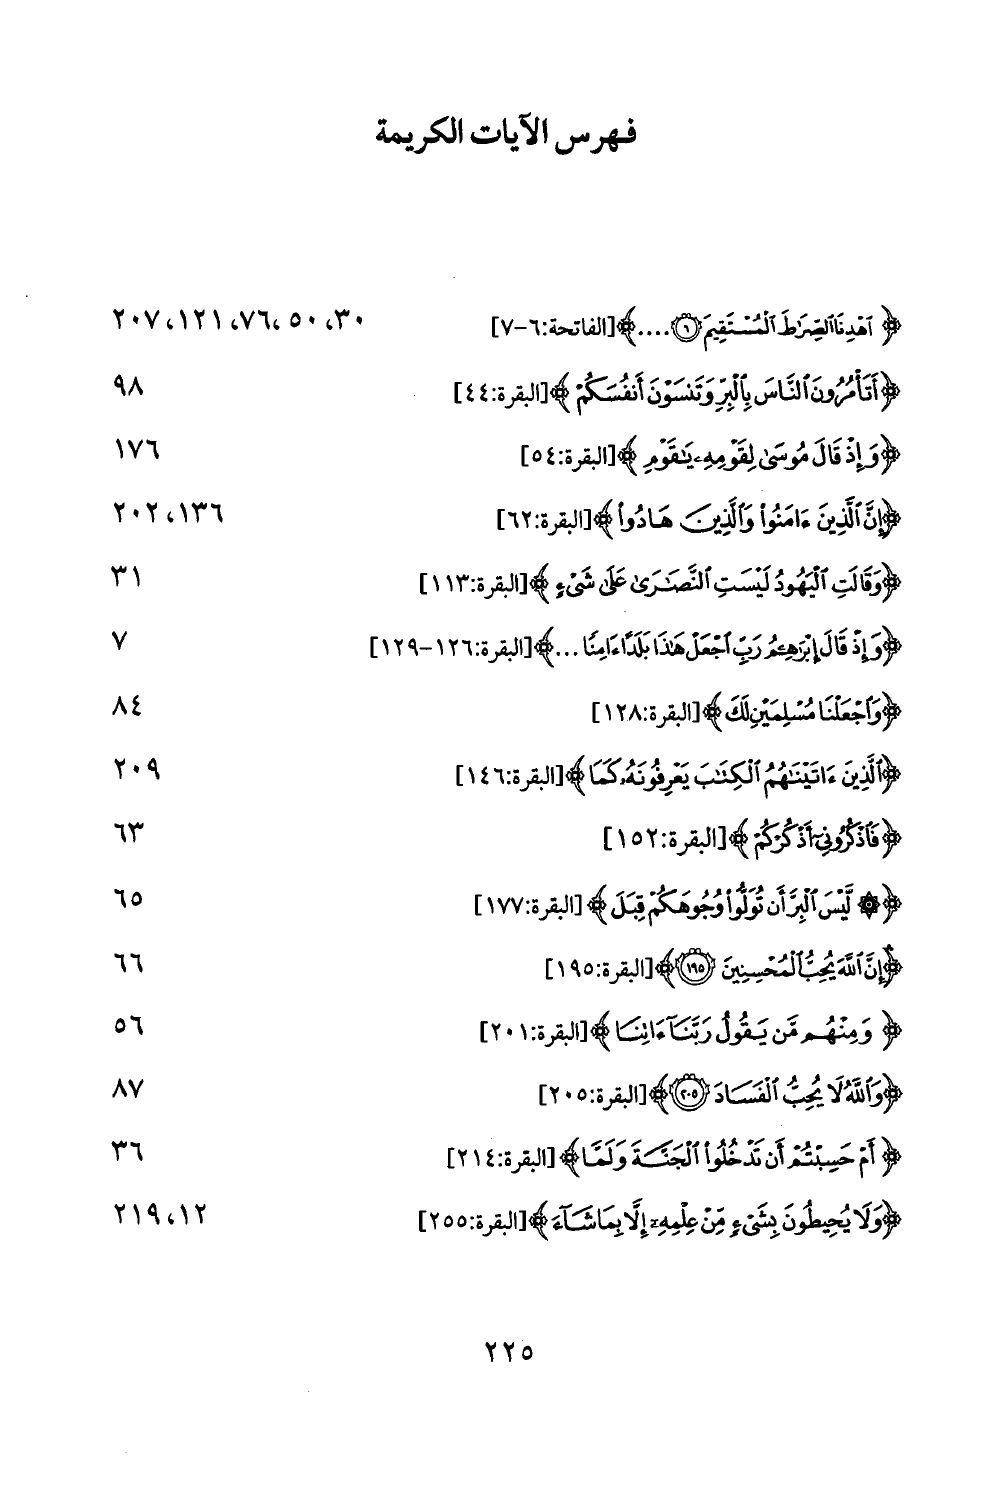 فهرس الآيات الكريمة
﴿ ٱهْدِنَا ٱلصِّرَٰطَ ٱلْمُسْتَقِيمَ ٦ ....﴾ [الفاتحة:٦-٧] ٣٠، ٥٠، ٧٦، ١٢١، ٢٠٧
﴿أَتَأْمُرُونَ ٱلنَّاسَ بِٱلْبِرِّ وَتَنسَوْنَ أَنفُسَكُمْ ﴾ [البقرة:٤٤] ٩٨
﴿وَإِذْ قَالَ مُوسَىٰ لِقَوْمِهِۦ يَٰقَوْمِ ﴾ [البقرة:٥٤] ١٧٦
﴿إِنَّ ٱلَّذِينَ ءَامَنُوا۟ وَٱلَّذِينَ هَادُوا۟ ﴾ [البقرة:٦٢] ١٣٦، ٢٠٢
﴿وَقَالَتِ ٱلْيَهُودُ لَيْسَتِ ٱلنَّصَٰرَىٰ عَلَىٰ شَىْءٍ ﴾ [البقرة:١١٣] ٣١
﴿وَإِذْ قَالَ إِبْرَٰهِـۧمُ رَبِّ ٱجْعَلْ هَٰذَا بَلَدًا ءَامِنًا ...﴾ [البقرة:١٢٦-١٢٩] ٧
﴿وَٱجْعَلْنَا مُسْلِمَيْنِ لَكَ ﴾ [البقرة:١٢٨] ٨٤
﴿ٱلَّذِينَ ءَاتَيْنَٰهُمُ ٱلْكِتَٰبَ يَعْرِفُونَهُۥ كَمَا ﴾ [البقرة:١٤٦] ٢٠٩
﴿فَٱذْكُرُونِىٓ أَذْكُرْكُمْ ﴾ [البقرة:١٥٢] ٦٣
﴿۞ لَّيْسَ ٱلْبِرَّ أَن تُوَلُّوا۟ وُجُوهَكُمْ قِبَلَ ﴾ [البقرة:١٧٧] ٦٥
﴿إِنَّ ٱللَّهَ يُحِبُّ ٱلْمُحْسِنِينَ ١٩٥ ﴾ [البقرة:١٩٥] ٦٦
﴿ وَمِنْهُم مَّن يَقُولُ رَبَّنَآ ءَاتِنَا ﴾ [البقرة:٢٠١] ٥٦
﴿وَٱللَّهُ لَا يُحِبُّ ٱلْفَسَادَ ٢٠٥ ﴾ [البقرة:٢٠٥] ٨٧
﴿ أَمْ حَسِبْتُمْ أَن تَدْخُلُوا۟ ٱلْجَنَّةَ وَلَمَّا ﴾ [البقرة:٢١٤] ٣٦
﴿وَلَا يُحِيطُونَ بِشَىْءٍ مِّنْ عِلْمِهِۦٓ إِلَّا بِمَا شَآءَ ﴾ [البقرة:٢٥٥] ١٢، ٢١٩
٢٢٥